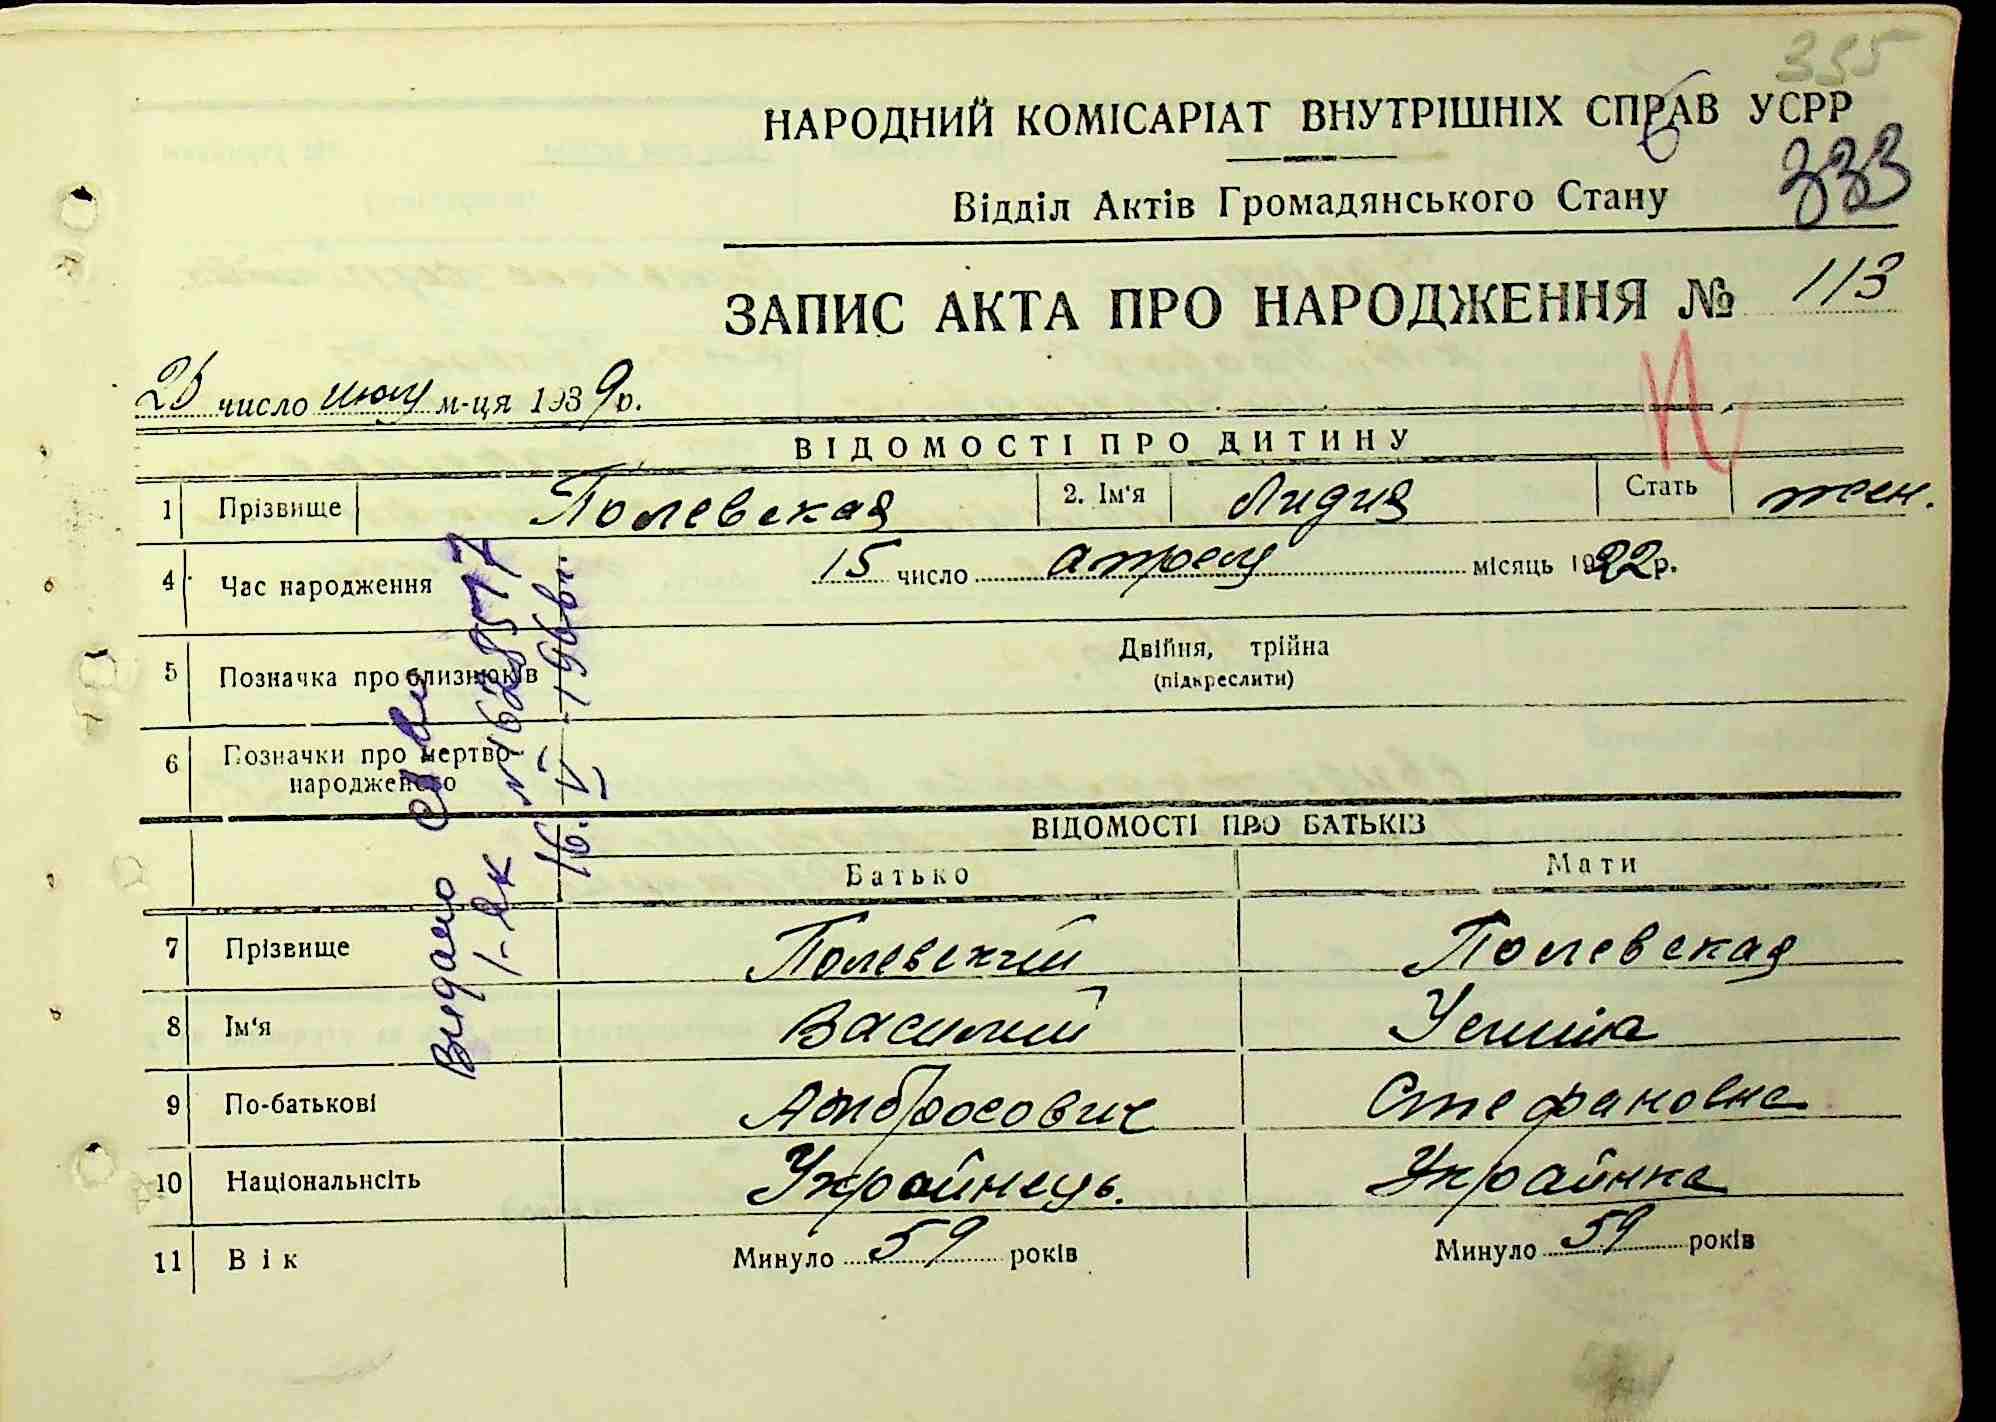 395
НАРОДНИЙ КОМІСАРІАТ ВНУТРІШНІХ СПРАВ УСРР
333
Відділ Актів Громадянського Стану
ЗАПИС АКТА ПРО НАРОДЖЕННЯ № 113
26 число июля м-ця 1939 р.
ВІДОМОСТІ ПРО ДИТИНУ
1 Прізвище Полевская 2. Ім'я Лидия Стать жен.
4 Час народження 15 число апреля місяць 1922 р.
5 Позначка про близнюків Двійня, трійна
(підкреслити)
6 Позначки про мертво-
народженого
ВІДОМОСТІ ПРО БАТЬКІВ
Батько Мати
7 Прізвище Полевский Полевская
8 Ім'я Василий
9 По-батькові Амбросович Стефановна
10 Національнсіть Украйнець. Украйнка
11 Вік Минуло 59 років Минуло 59 років
Видано
16. V 1966 г.